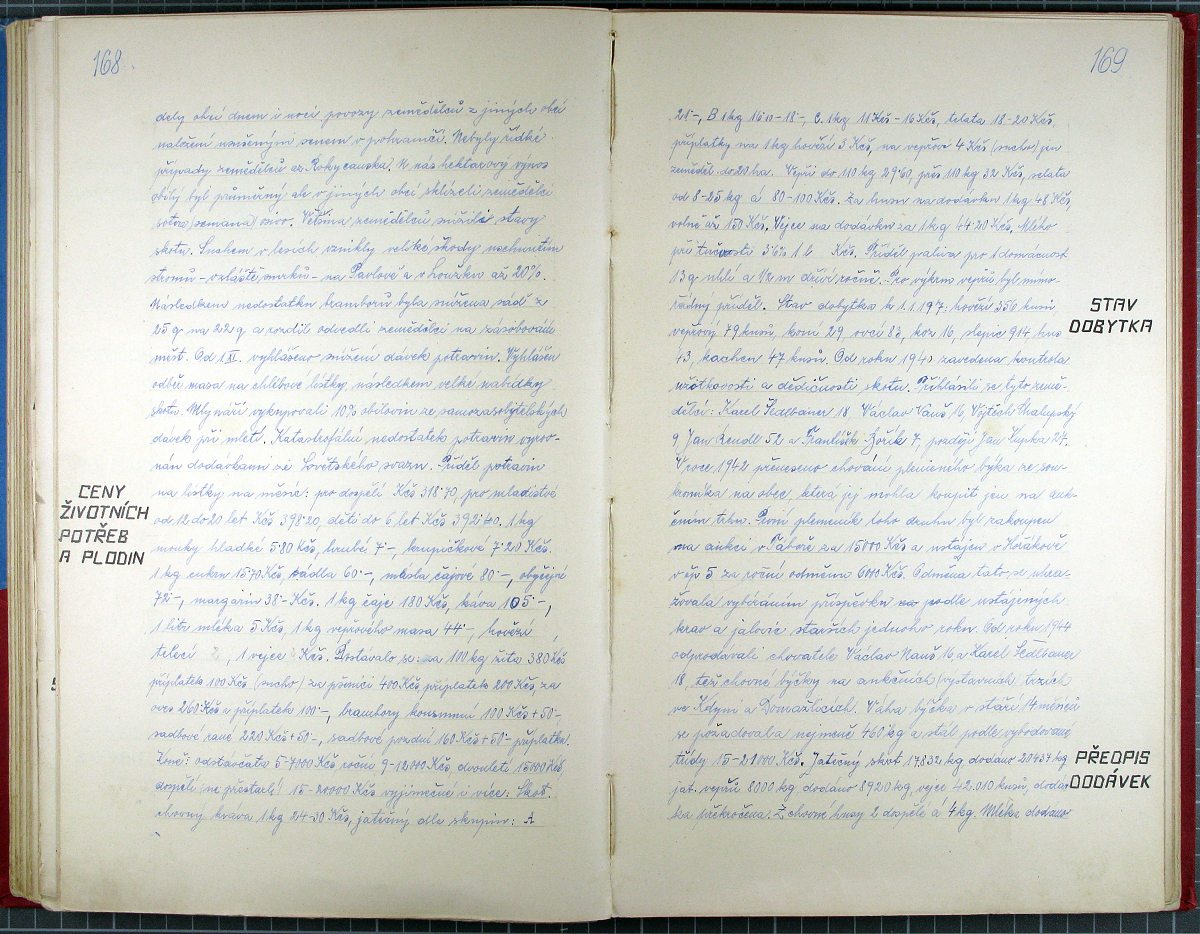 168
dely obcí dnem i nocí povozy zemědělců z jiných obcí
naložení usušeným senem v pohraničí. Nebyly řídké
případy zemědělců až Rokycanska. U nás hektarový výnos
obilý byl průměrný ale v jiných obcí sklízeli zemědělci
sotva semana. Většina zemědělců snížili stavy
skotu. Suchem v lesích vznikly veliké škody uschnutím
stromů – zvláště smrků – na Pavlově a v Loužku až 20%.
Následkem nedostatku bramborů byla snížena sad z
25 q na 22 q a rozdíl odvedli zemědělci na zásobování
měst. Od 1.XI. vyhlášeno snížení dávek potravin. Vyhlášen
odběr masa na chlebové lístky, následkem velké nabídky
skotu. Mlynáři vykupovali 10% obilovin ze samozásobitelských
dávek při mletí. Katastrofální nedostatek potravin vyrov-
nán dodávkami ze Sovětského svazu. Příděl potravin
CENY
ŽIVOTNÍCH
POTŘEB
A PLODIN
na lístky na měsíc: pro dospělí Kčs 318·70, pro mladistvé
od 12 do 20 let Kčs 398·20, děti do 6 let Kčs 392·40. 1 kg
mouky hladké 5·80 Kčs, hrubé 7·–, krupičkové 7·20 Kčs.
1 kg cukru 15·70 Kčs sádla 60·–, másla čajové 80·–, obyčejné
72·–, margarin 38·– Kčs. 1 kg čaje 180 Kčs, káva 105·–,
1 litr mléka 5 Kčs, 1 kg vepřového masa 44·–, hovězí ,
telecí , 1 vejce Kčs. Dostávalo se: za 100 kg žita 380 Kčs
příplatek 100 Kčs (sucho) za pšenici 400 Kčs příplatek 200 Kčs za
oves 260 Kčs a příplatek 100·–, brambory konsumní 100 Kčs + 50·–
sadbové rané 220 Kčs + 50·–, sadbové pozdní 160 Kčs + 50·– příplatku.
Koně: odstávčata 5–7000 Kčs roční 9–12000 Kčs, dvouletí 15000 Kčs,
dospělí (ne přestárlí) 15–20000 Kčs vyjimečně i více: Skot.
chovný kráva 1 kg 24–30 Kčs, jatečný dle skupin: A
169
21·–, B 1 kg 16·10–18·–, C. 1 kg 11 Kčs – 16 Kčs, telata 18–20 Kčs
příplatky na 1 kg hovězí 3 Kčs, na vepřové 4 Kčs (sucho) jen
zeměděl. do 20 ha. Vepři do 110 kg 29·60, přes 110 kg 32 Kčs, selata
od 8–25 kg á 80–100 Kčs. Za husu na dodávku 1 kg 48 Kčs,
volně až 150 Kčs. Vejce na dodávku za 1 kg 44·20 Kčs. Mléko
při tučnosti 3·6% 1 l Kčs. Příděl paliva pro 1 domácnost
13 q uhlí a ½ m dříví ročně. Pro výkrm vepřů byl mimo-
řádný příděl. Stav dobytka k 1.1.1947: hovězí 350 kusů,
STAV
DOBYTKA
vepřový 79 kusů, koní 29, ovcí 83, koz 16, slepic 914, hus
43, kachen 47 kusů. Od roku 1940 zavedena kontrola
užitkovosti a dědičnosti skotu. Přihlásili se tyto země-
dělci: Karel Sedlbauer 18 Václav Nauš 16 Vojtěch Chalupský
9 Jan Rendl 52 a František Bořík 7, později Jan Slupka 27.
V roce 1942 přeneseno chování plemeného býka ze sou-
kromníka na obec, která jej mohla koupit jen na auk-
čním trhu. První plemeník toho druhu byl zakoupen
na aukci v Táboře za 15000 Kčs a ustájen v Hořákově
v čp 5 za roční odměnu 6000 Kčs. Odměna tato se uhra-
žovala vybíráním příspěvku podle ustájených
krav a jalovic starších jednoho roku. Od roku 1944
odprodávali chovatelé Václav Nauš 16 a Karel Sedlbauer
18 též chovné býčky na aukčních (výstavních) trzích
ve Kdyni a Domažlicích. Váha býčka v stáří 14 měsíců
se požadovala nejméně 460 kg a stál podle vyhodnocené
třídy 15–21000 Kčs. Jatečný skot 17832 kg dodáno 20437 kg
PŘEDPIS
DODÁVEK
jat. vepřů 8000 kg dodáno 8920 kg, vejce 42.010 kusů, dodáv-
ka překročena. Z chovné husy 2 dospělé á 4 kg. Mléka dodáno